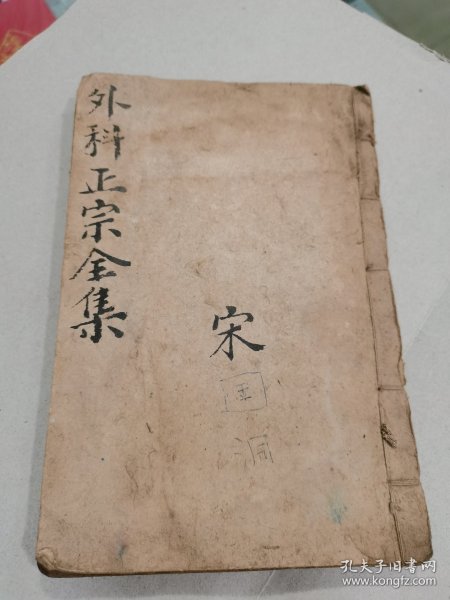 外科正宗全集
宋
孔夫子旧书网
www.kongfz.com